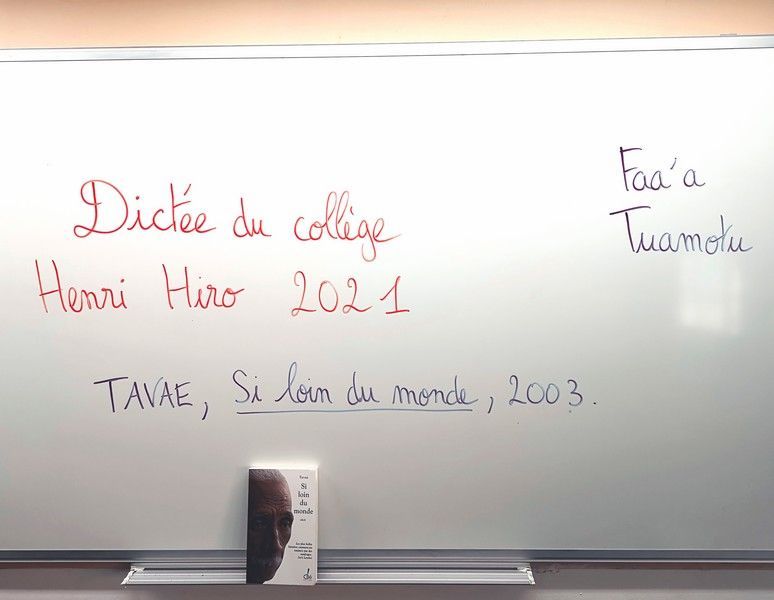 Dictée du collège
Henri Hiro 2021
Faa'a
Tuamotu
TAVAE, Si loin du monde, 2003.
Tavae
Si
loin
du
monde